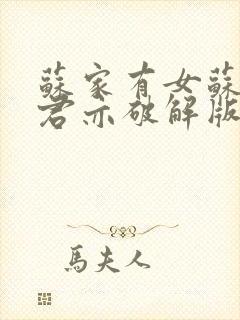 蘇家有女蘇
君亦破解版
馬夫人